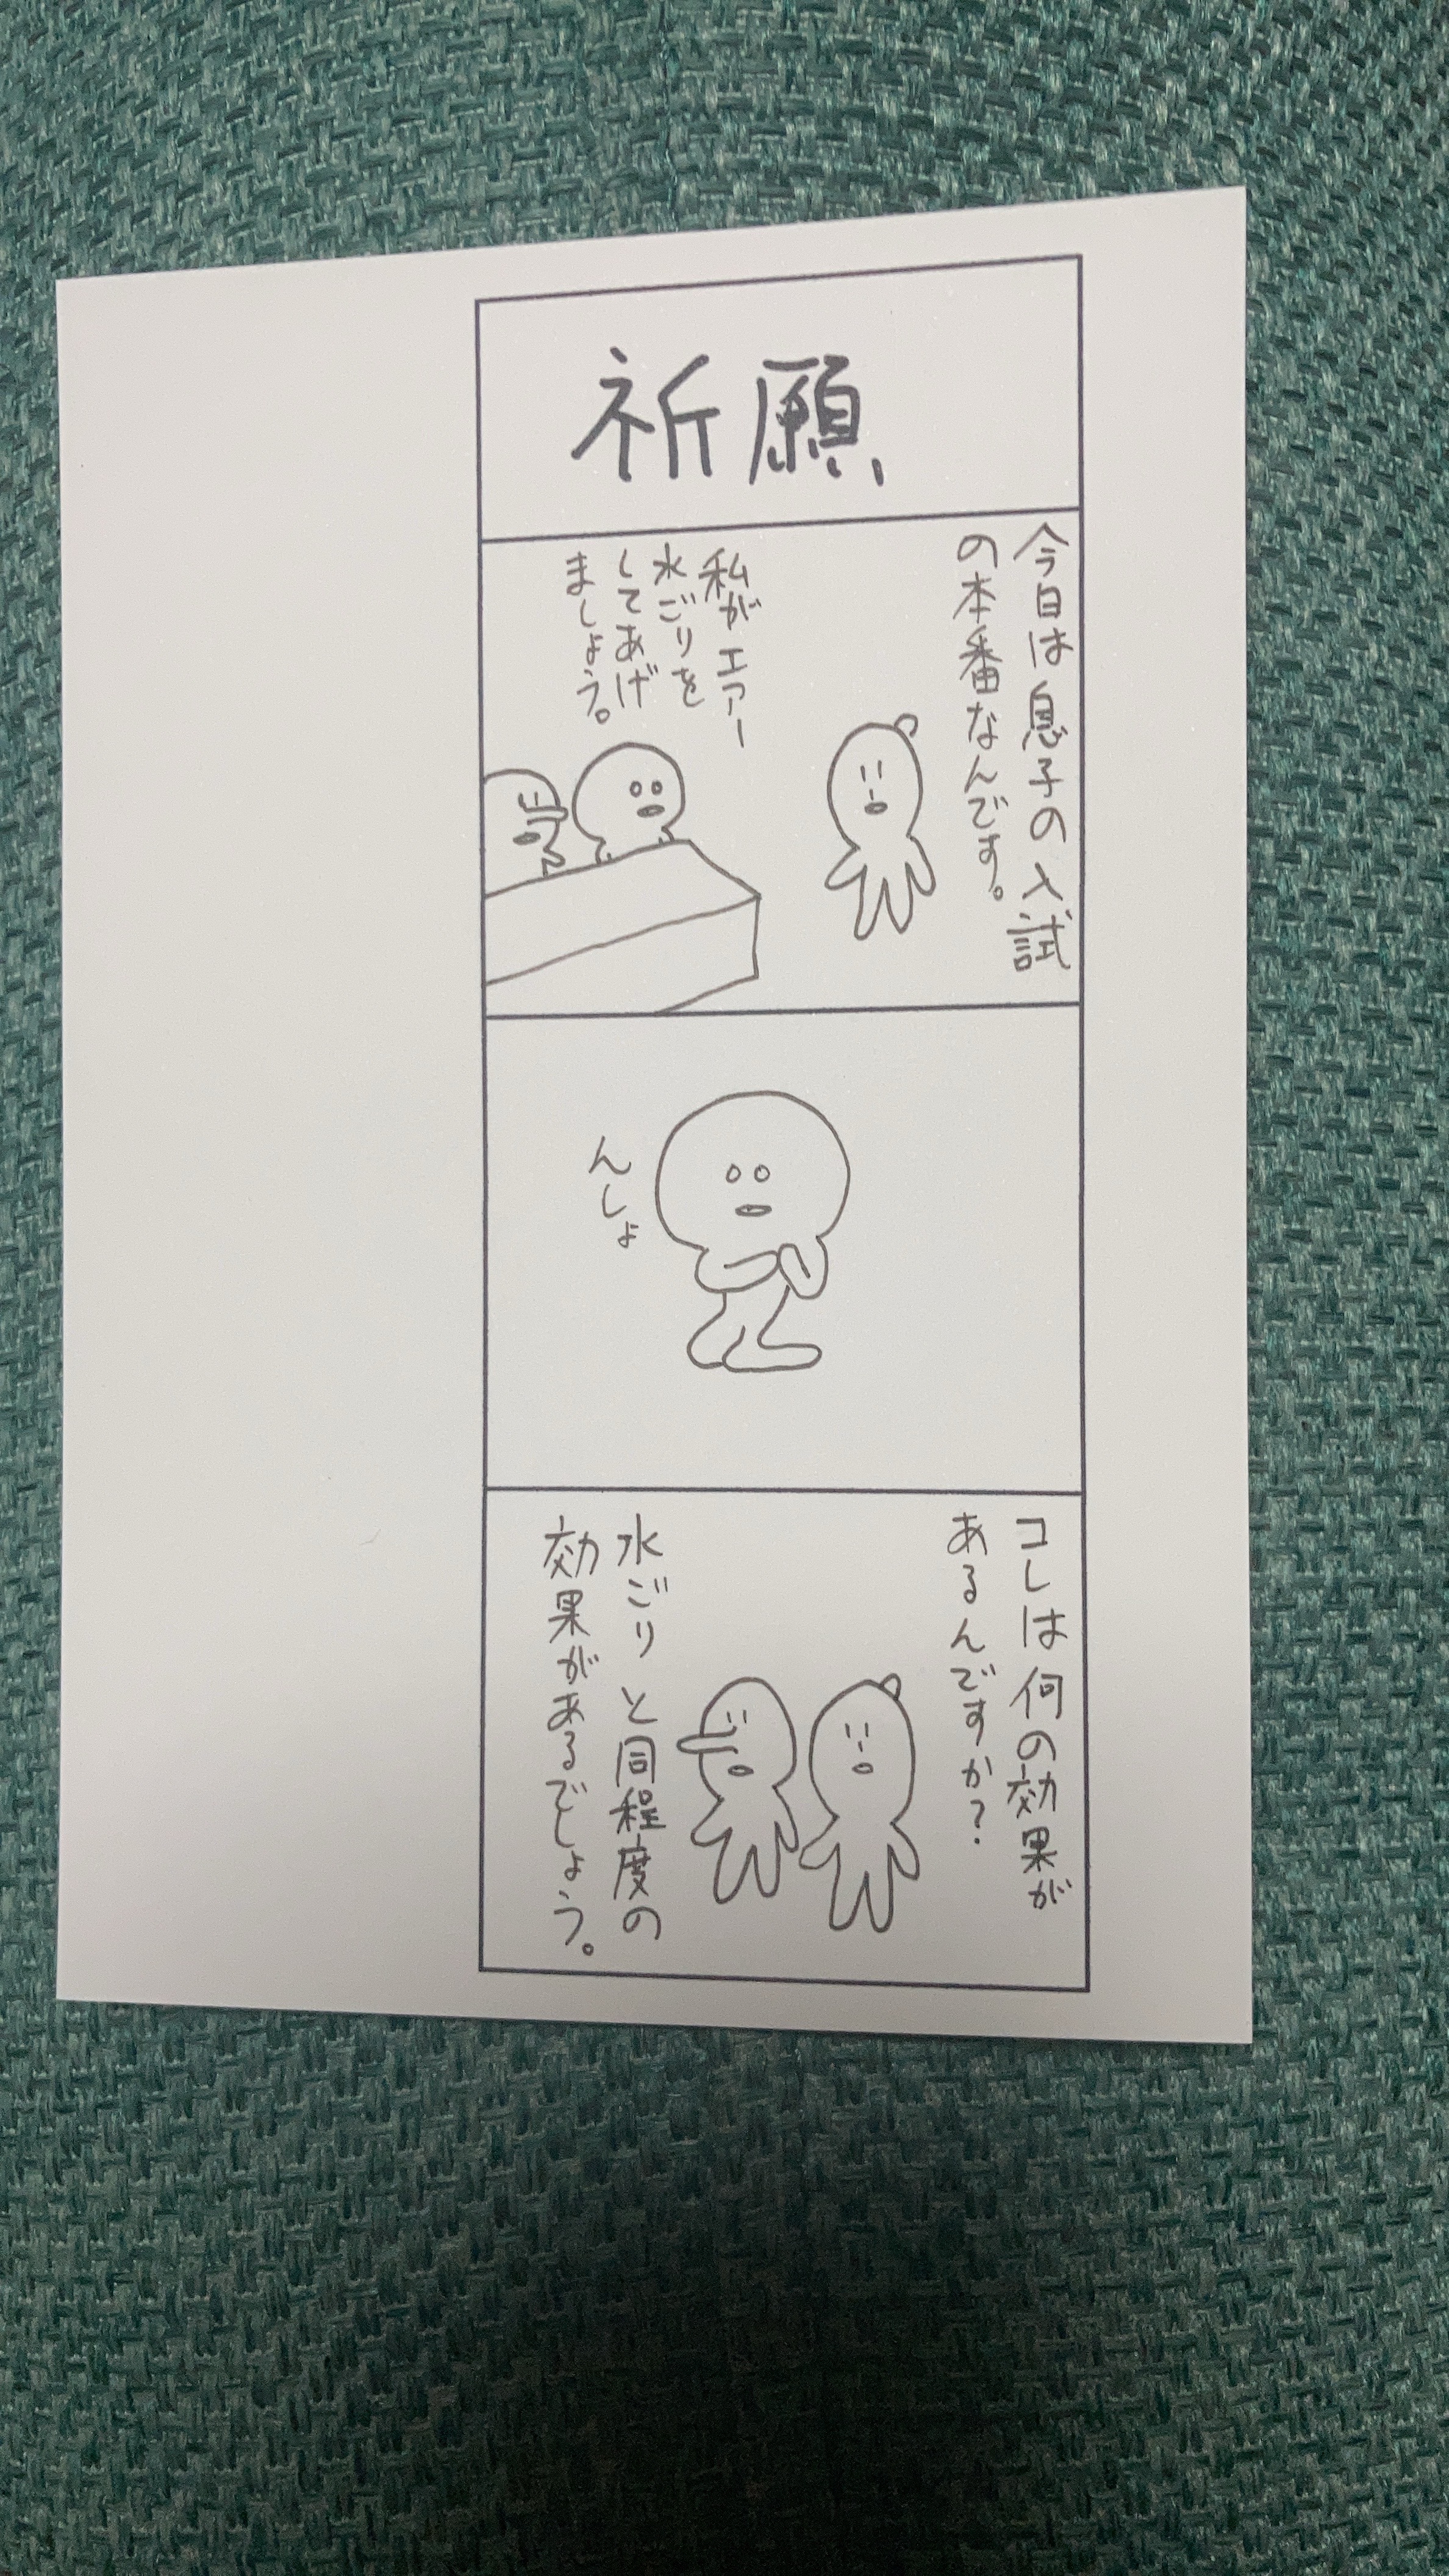 祈願
今日は息子の入試
の本番なんです。
私がエアー
水ごりを
してあげ
ましょう。
んしょ
コレは何の効果が
あるんですか?
水ごりと同程度の
効果があるでしょう。